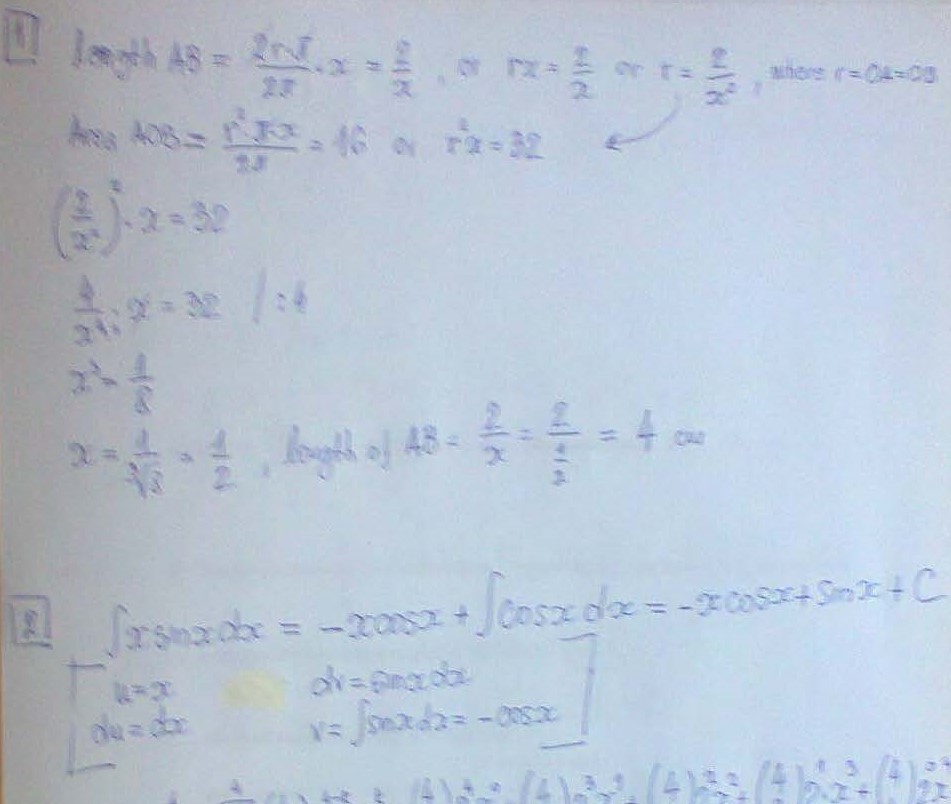 1 Length AB = 2r·π/2π · x = 2/x , or rx = 2/x or r = 2/x² , where r = OA = OB
Area AOB = r²·π·x/2π = 16 or r²x = 32
(2/x²)² · x = 32
4/x⁴ · x = 32 / :4
x³ = 1/8
x = 1/∛8 = 1/2 , length of AB = 2/x = 2/(1/2) = 4 cm
2 ∫x sinx dx = -xcosx + ∫cosx dx = -xcosx + sinx + C
u = x dv = sinx dx
du = dx v = ∫sinx dx = -cosx